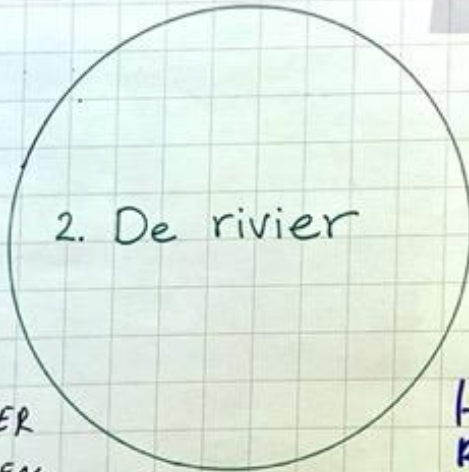 2. De rivier